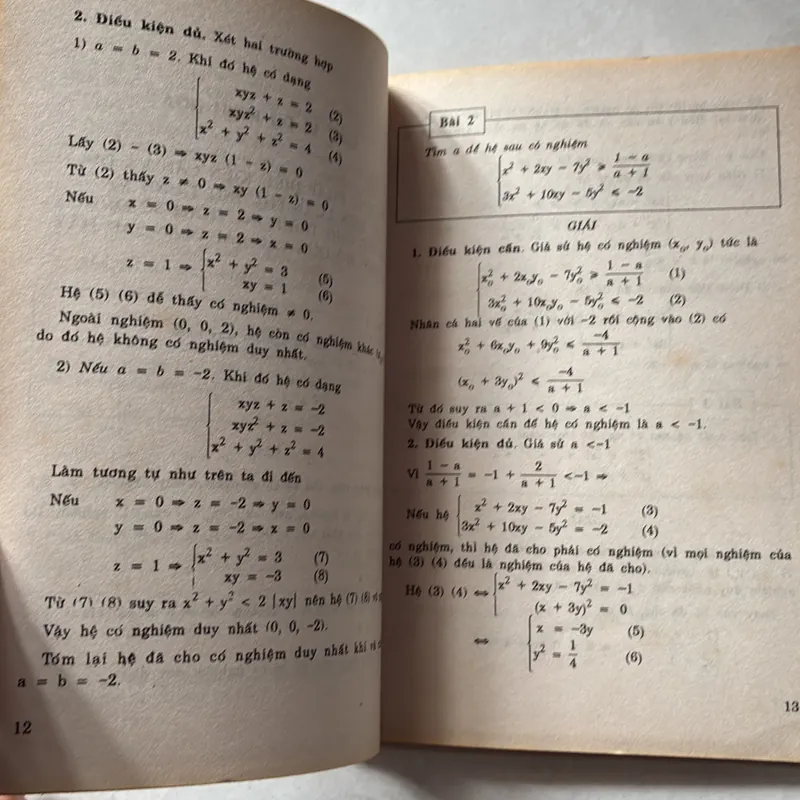 2. Điều kiện đủ. Xét hai trường hợp
1) a = b = 2. Khi đó hệ có dạng
xyz + z = 2 (2)
xyz² + z = 2 (3)
x² + y² + z² = 4 (4)
Lấy (2) − (3) ⇒ xyz (1 − z) = 0
Từ (2) thấy z ≠ 0 ⇒ xy (1 − z) = 0
Nếu x = 0 ⇒ z = 2 ⇒ y = 0
y = 0 ⇒ z = 2 ⇒ x = 0
z = 1 ⇒ { x² + y² = 3 (5)
xy = 1 (6)
Hệ (5) (6) dễ thấy có nghiệm ≠ 0.
Ngoài nghiệm (0, 0, 2), hệ còn có nghiệm khác
do đó hệ không có nghiệm duy nhất.
2) Nếu a = b = −2. Khi đó hệ có dạng
xyz + z = −2
xyz² + z = −2
x² + y² + z² = 4
Làm tương tự như trên ta đi đến
Nếu x = 0 ⇒ z = −2 ⇒ y = 0
y = 0 ⇒ z = −2 ⇒ x = 0
z = 1 ⇒ { x² + y² = 3 (7)
xy = −3 (8)
Từ (7) (8) suy ra x² + y² < 2 |xy| nên hệ (7) (8)
Vậy hệ có nghiệm duy nhất (0, 0, −2).
Tóm lại hệ đã cho có nghiệm duy nhất khi và
a = b = −2.
12
Bài 2
Tìm a để hệ sau có nghiệm
x² + 2xy − 7y² ⩾ (1 − a)/(a + 1)
3x² + 10xy − 5y² ⩽ −2
GIẢI
1. Điều kiện cần. Giả sử hệ có nghiệm (x₀, y₀) tức là
x₀² + 2x₀y₀ − 7y₀² ⩾ (1 − a)/(a + 1) (1)
3x₀² + 10x₀y₀ − 5y₀² ⩽ −2 (2)
Nhân cả hai vế của (1) với −2 rồi cộng vào (2) có
x₀² + 6x₀y₀ + 9y₀² ⩽ −4/(a + 1)
(x₀ + 3y₀)² ⩽ −4/(a + 1)
Từ đó suy ra a + 1 < 0 ⇒ a < −1
Vậy điều kiện cần để hệ có nghiệm là a < −1.
2. Điều kiện đủ. Giả sử a <−1
Vì (1 − a)/(a + 1) = −1 + 2/(a + 1) <−1 ⇒
Nếu hệ { x² + 2xy − 7y² = −1 (3)
3x² + 10xy − 5y² = −2 (4)
có nghiệm, thì hệ đã cho phải có nghiệm (vì mọi nghiệm của
hệ (3) (4) đều là nghiệm của hệ đã cho).
Hệ (3) (4) ⇔ { x² + 2xy − 7y² = −1
(x + 3y)² = 0
⇔ { x = −3y (5)
y² = 1/4 (6)
13